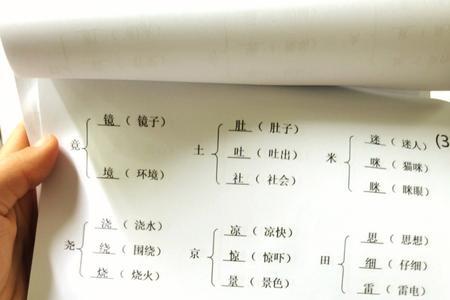 竟 镜（镜子）
境（环境）
土 肚（肚子）
吐（吐出）
社（社会）
米 迷（迷人）
咪（猫咪）
眯（眯眼）
(3
尧 浇（浇水）
绕（围绕）
烧（烧火）
京 凉（凉快）
惊（惊吓）
景（景色）
田 思（思想）
细（仔细）
雷（雷电）